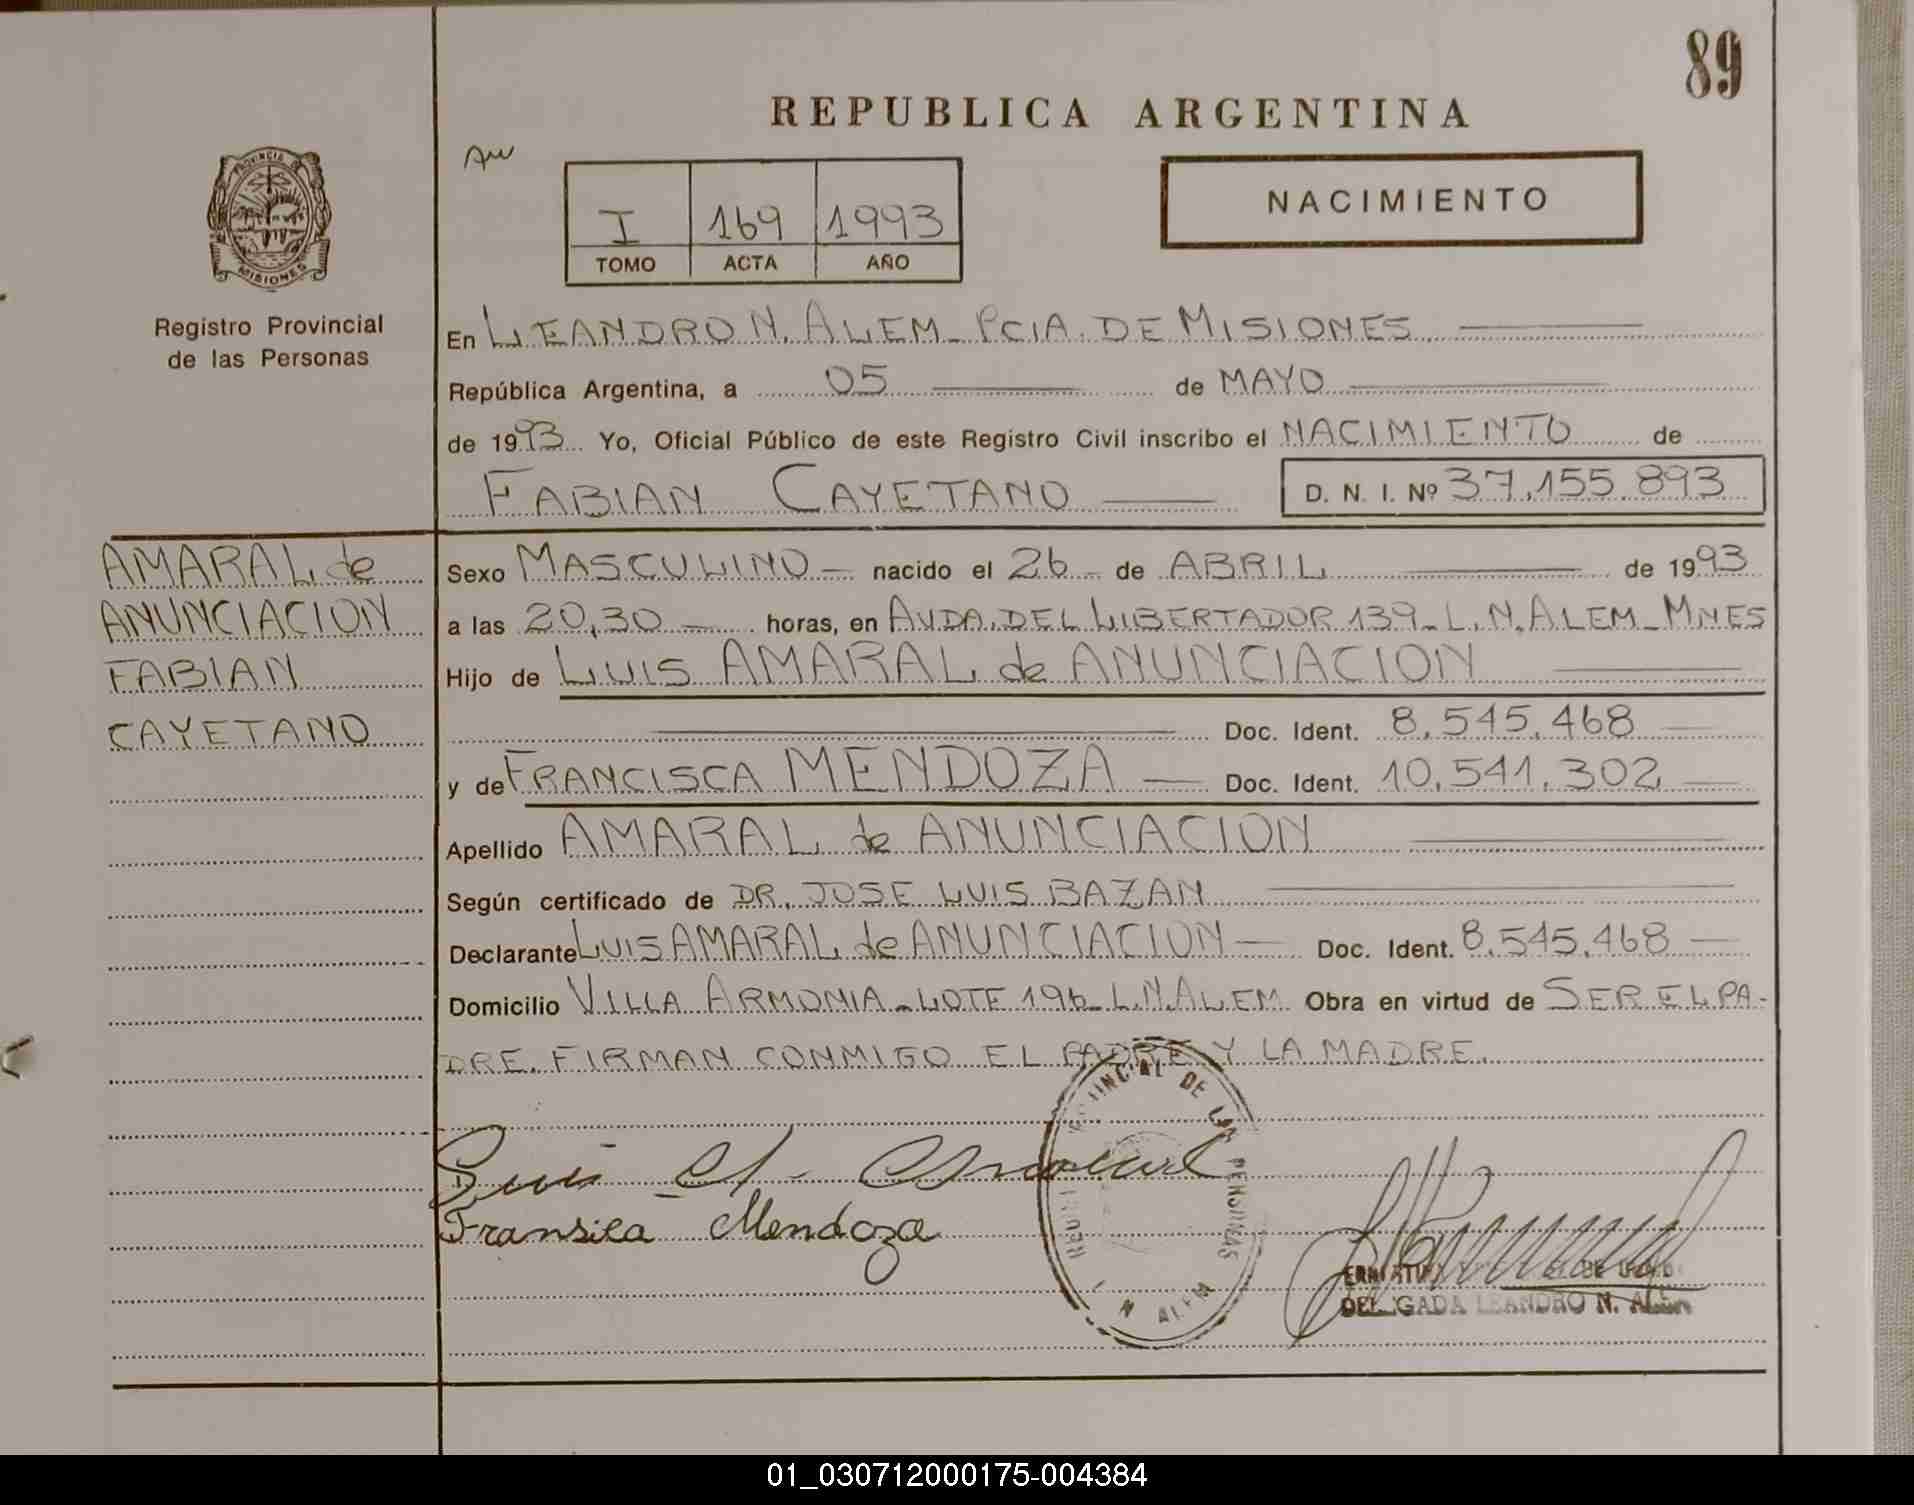 89
REPUBLICA ARGENTINA
PROVINCIA DE
MISIONES
Registro Provincial
de las Personas
I 169 1993
TOMO ACTA AÑO
NACIMIENTO
En LEANDRO N. ALEM_ PCIA. DE MISIONES.
República Argentina, a 05 de MAYO
de 1993 Yo, Oficial Público de este Registro Civil inscribo el NACIMIENTO de
FABIAN CAYETANO D. N. I. Nº 37.155.893
AMARAL de
ANUNCIACION
FABIAN
CAYETANO
Sexo MASCULINO nacido el 26 de ABRIL de 1993
a las 20,30 horas, en AVDA. DEL LIBERTADOR 139_ L. N. ALEM_ MNES
Hijo de LUIS AMARAL de ANUNCIACION
Doc. Ident. 8.545.468
y de FRANCISCA MENDOZA Doc. Ident. 10.541.302
Apellido AMARAL de ANUNCIACION
Según certificado de DR. JOSE LUIS BAZAN
Declarante LUIS AMARAL de ANUNCIACION Doc. Ident. 8.545.468
Domicilio VILLA ARMONIA_ LOTE 196_ L.N. ALEM Obra en virtud de SER EL PA-
DRE. FIRMAN CONMIGO EL PADRE Y LA MADRE.
Luis A. Amaral
Fransica Mendoza
DE LAS PERSONAS
L N ALEM
DELEGADA LEANDRO N. ALEM
01_030712000175-004384